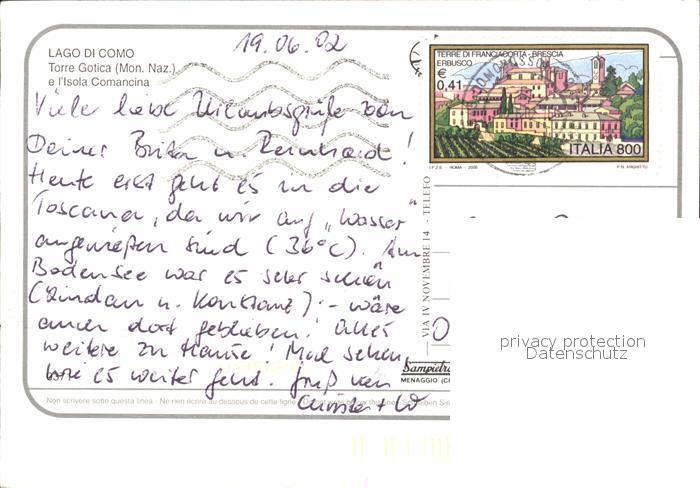 19.06.02
LAGO DI COMO
Torre Gotica (Mon. Naz.)
e l'Isola Comancina
Viele liebe Urlaubsgrüße von
Deiner Britta u. Reinhard!
Heute erst geht es in die
Toscana, da wir auf „Wasser"
angewießen sind (36°C). Am
Bodensee war es sehr schön
(Lindau u. Konstanz) - wäre
auch dort geblieben! Alles
weitere zu Hause! Mal sehen
wie es weiter geht. Gruß von
+ W
TERRE DI FRANCIACORTA - BRESCIA
ERBUSCO
€
0,41
ITALIA 800
I.P.Z.S. - ROMA - 2000
VIA IV NOVEMBRE 14 - TELEFO
Sampietro
MENAGGIO (C
privacy protection
Datenschutz
Non scrivere sotto questa linea - Ne rien écrire au dessous de cette ligne - Do not write below this line - Schreiben Sie